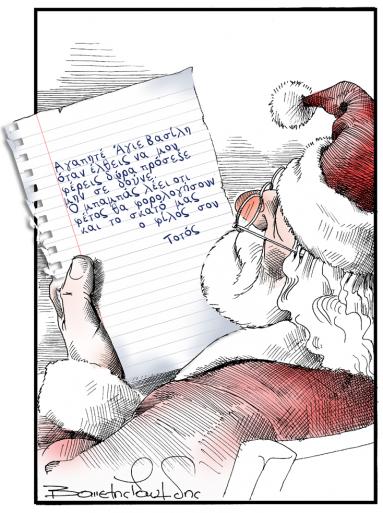 Αγαπητέ Άγιε Βασίλη
όταν έλθεις να μου
φέρεις δώρα πρόσεξε
μην σε δούνε.
Ο μπαμπάς λέει οτι
φέτος θα φορολογήσουν
και το σκατό μας
ο φίλος σου
Τοτός